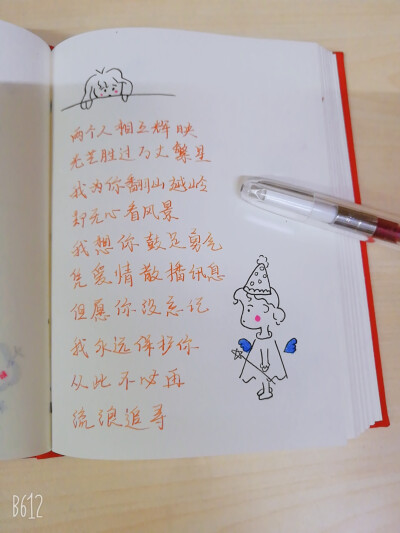 两个人相互辉映
光芒胜过万丈繁星
我为你翻山越岭
却无心看风景
我想你鼓足勇气
凭爱情散播讯息
但愿你没忘记
我永远保护你
从此不必再
流浪追寻
B612